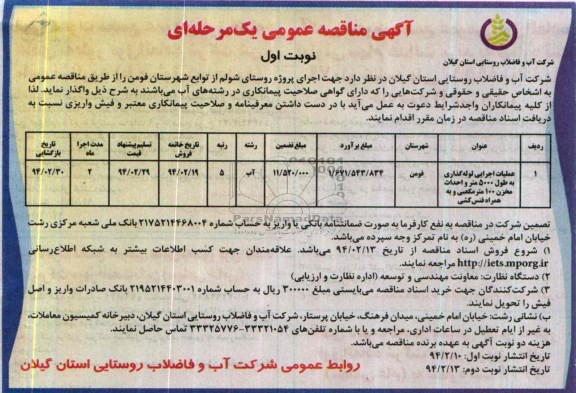 آگهی مناقصه عمومی یک‌مرحله‌ای
نوبت اول
شرکت آب و فاضلاب روستایی استان گیلان
شرکت آب و فاضلاب روستایی استان گیلان در نظر دارد جهت اجرای پروژه روستای شولم از توابع شهرستان فومن را از طریق مناقصه عمومی
به اشخاص حقیقی و حقوقی و شرکت‌هایی را که دارای گواهی صلاحیت پیمانکاری در رشته‌های آب می‌باشند به شرح ذیل واگذار نماید. لذا
از کلیه پیمانکاران واجدشرایط دعوت به عمل می‌آید با در دست داشتن معرفینامه و صلاحیت پیمانکاری معتبر و فیش واریزی نسبت به
دریافت اسناد مناقصه در زمان مقرر اقدام نمایند.
ردیف عنوان شهرستان مبلغ برآورد مبلغ تضمین رشته رتبه تاریخ خاتمه فروش تسلیم پیشنهاد قیمت مدت اجرا ماه تاریخ بازگشایی
۱ عملیات اجرایی لوله‌گذاری به طول ۵۰۰۰ متر و احداث مخزن ۱۰۰ مترمکعبی و به همراه فنس‌کشی فومن ۱/۶۷۱/۵۴۳/۸۳۴ ۱۱/۵۲۰/۰۰۰ آب ۵ ۹۴/۰۲/۱۹ ۹۴/۰۲/۲۹ ۲ ۹۴/۰۲/۳۰
ParsNamadData
تضمین شرکت در مناقصه به نفع کارفرما به صورت ضمانتنامه بانکی یا واریز به حساب شماره ۲۱۷۵۲۱۴۴۶۸۰۰۴ بانک ملی شعبه مرکزی رشت
خیابان امام خمینی (ره) به نام تمرکز وجه سپرده می‌باشد.
۱) شروع فروش اسناد مناقصه از تاریخ ۹۴/۰۲/۱۳ می‌باشد. علاقه‌مندان جهت کسب اطلاعات بیشتر به شبکه اطلاع‌رسانی
http://iets.mporg.ir مراجعه نمایند.
۲) دستگاه نظارت: معاونت مهندسی و توسعه (اداره نظارت و ارزیابی)
۳) شرکت‌کنندگان جهت خرید اسناد مناقصه می‌بایستی مبلغ ۳۰۰۰۰۰ ریال به حساب شماره ۲۱۹۵۲۱۴۴۰۳۰۰۱ بانک صادرات واریز و اصل
فیش را تحویل نمایند.
ب) نشانی رشت: خیابان امام خمینی، میدان فرهنگ، خیابان پرستار، شرکت آب و فاضلاب روستایی استان گیلان، دبیرخانه کمیسیون معاملات،
به غیر از ایام تعطیل در ساعات اداری، مراجعه و یا با شماره تلفن‌های ۳۳۳۲۱۰۵۴-۳۳۳۲۵۷۷۶ تماس حاصل نمایند.
هزینه دو نوبت آگهی به عهده برنده مناقصه می‌باشد.
تاریخ انتشار نوبت اول: ۹۴/۲/۱۰
تاریخ انتشار نوبت دوم: ۹۴/۲/۱۳
روابط عمومی شرکت آب و فاضلاب روستایی استان گیلان